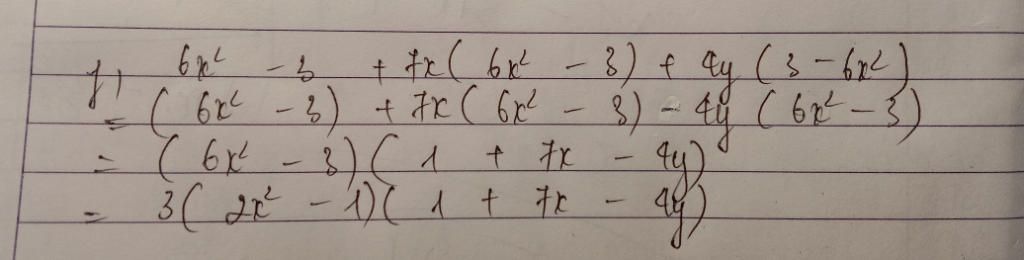 f) 6x² - 3 + 7x( 6x² - 3) + 4y ( 3 - 6x²)
= ( 6x² - 3) + 7x( 6x² - 3) - 4y ( 6x² - 3)
= ( 6x² - 3)( 1 + 7x - 4y)
= 3( 2x² - 1)( 1 + 7x - 4y)